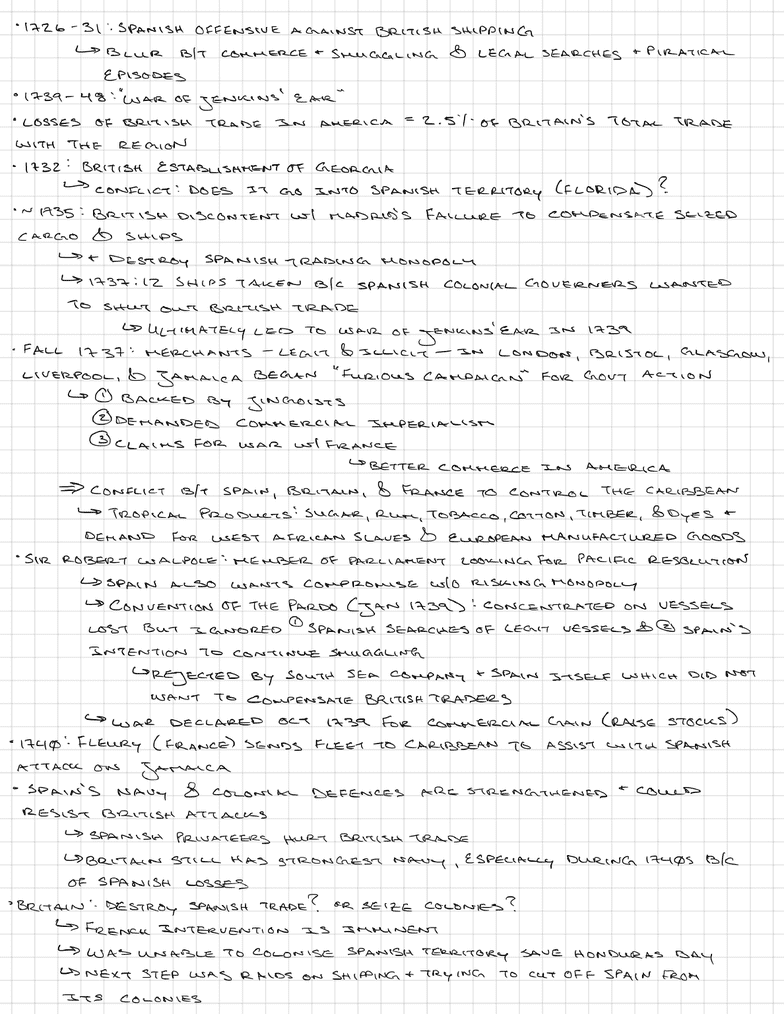 • 1726-31: SPANISH OFFENSIVE AGAINST BRITISH SHIPPING
↳ BLUR B/T COMMERCE + SMUGGLING & LEGAL SEARCHES + PIRATICAL
EPISODES
• 1739-48: "WAR OF JENKINS' EAR"
• LOSSES OF BRITISH TRADE IN AMERICA = 2.5% OF BRITAIN'S TOTAL TRADE
WITH THE REGION
• 1732: BRITISH ESTABLISHMENT OF GEORGIA
↳ CONFLICT: DOES IT GO INTO SPANISH TERRITORY (FLORIDA)?
• ~1735: BRITISH DISCONTENT W/ MADRID'S FAILURE TO COMPENSATE SEIZED
CARGO & SHIPS
↳ + DESTROY SPANISH TRADING MONOPOLY
↳ 1737: 12 SHIPS TAKEN B/C SPANISH COLONIAL GOVERNERS WANTED
TO SHUT OUT BRITISH TRADE
↳ ULTIMATELY LED TO WAR OF JENKINS' EAR IN 1739
• FALL 1737: MERCHANTS - LEGIT & ILLICIT - IN LONDON, BRISTOL, GLASGOW,
LIVERPOOL, & JAMAICA BEGAN "FURIOUS CAMPAIGN" FOR GOVT ACTION
↳ ① BACKED BY JINGOISTS
② DEMANDED COMMERCIAL IMPERIALISM
③ CLAIMS FOR WAR W/ FRANCE
↳ BETTER COMMERCE IN AMERICA
⇒ CONFLICT B/T SPAIN, BRITAIN, & FRANCE TO CONTROL THE CARIBBEAN
↳ TROPICAL PRODUCTS: SUGAR, RUM, TOBACCO, COTTON, TIMBER, & DYES +
DEMAND FOR WEST AFRICAN SLAVES & EUROPEAN MANUFACTURED GOODS
• SIR ROBERT WALPOLE: MEMBER OF PARLIAMENT LOOKING FOR PACIFIC RESOLUTION
↳ SPAIN ALSO WANTS COMPROMISE W/O RISKING MONOPOLY
↳ CONVENTION OF THE PARDO (JAN 1739): CONCENTRATED ON VESSELS
LOST BUT IGNORED ① SPANISH SEARCHES OF LEGIT VESSELS & ② SPAIN'S
INTENTION TO CONTINUE SMUGGLING
↳ REJECTED BY SOUTH SEA COMPANY + SPAIN ITSELF WHICH DID NOT
WANT TO COMPENSATE BRITISH TRADERS
↳ WAR DECLARED OCT 1739 FOR COMMERCIAL GAIN (RAISE STOCKS)
• 1740: FLEURY (FRANCE) SENDS FLEET TO CARIBBEAN TO ASSIST WITH SPANISH
ATTACK ON JAMAICA
- SPAIN'S NAVY & COLONIAL DEFENCES ARE STRENGTHENED + COULD
RESIST BRITISH ATTACKS
↳ SPANISH PRIVATEERS HURT BRITISH TRADE
↳ BRITAIN STILL HAS STRONGEST NAVY, ESPECIALLY DURING 1740S B/C
OF SPANISH LOSSES
• BRITAIN: DESTROY SPANISH TRADE? OR SEIZE COLONIES?
↳ FRENCH INTERVENTION IS IMMINENT
↳ WAS UNABLE TO COLONISE SPANISH TERRITORY SAVE HONDURAS DAY
↳ NEXT STEP WAS RAIDS ON SHIPPING + TRYING TO CUT OFF SPAIN FROM
ITS COLONIES